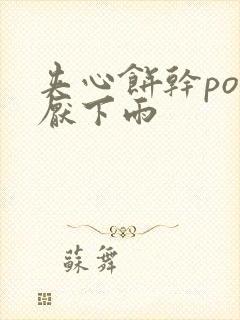 夹心餅幹po
厭下雨
蘇舞